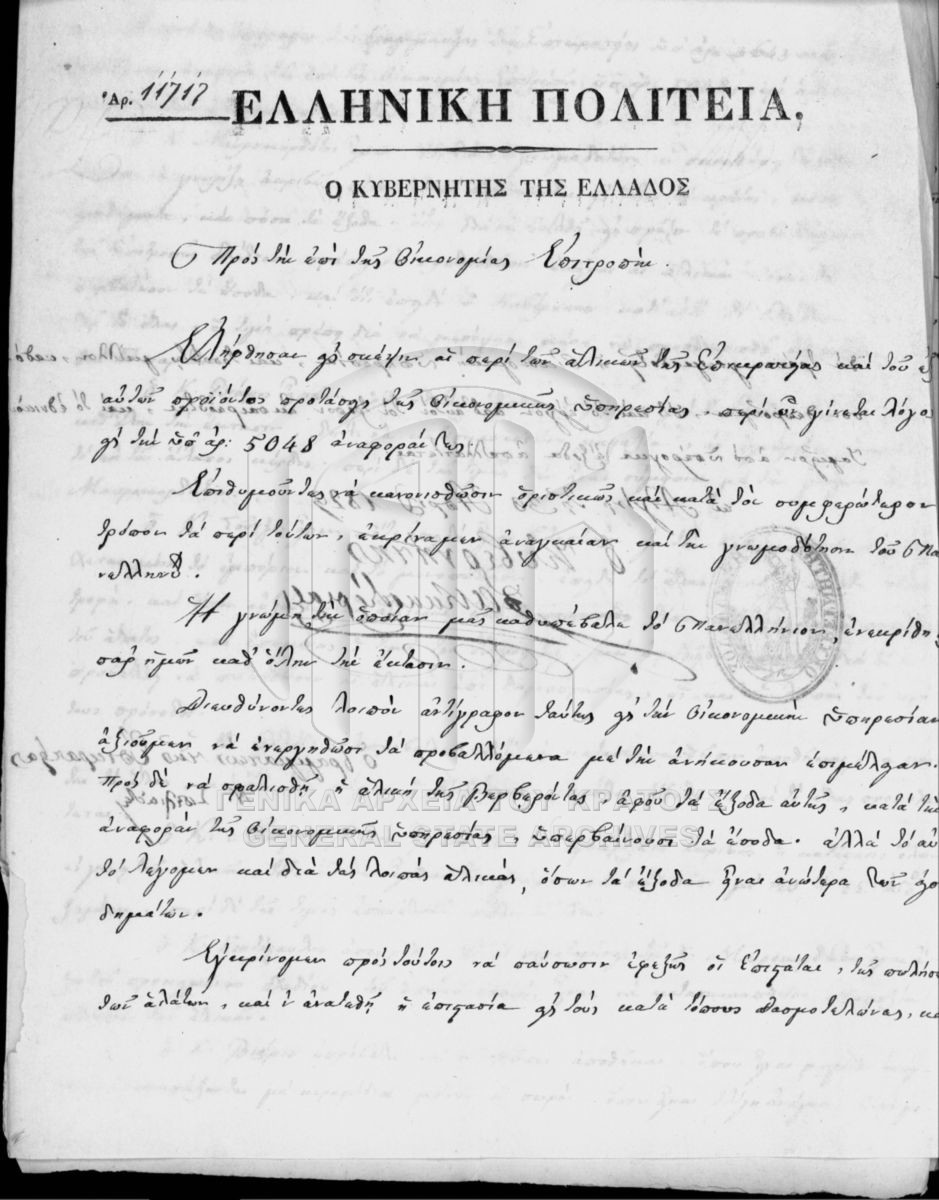 Ἀρ. 11717
ΕΛΛΗΝΙΚΗ ΠΟΛΙΤΕΙΑ.
Ο ΚΥΒΕΡΝΗΤΗΣ ΤΗΣ ΕΛΛΑΔΟΣ
Πρὸς τὴν ἐπὶ τῆς Οἰκονομίας Ἐπιτροπήν.
Ἐλήφθησαν εἰς σκέψιν αἱ περὶ τῶν ἁλικῶν τῆς Ἐπικρατείας καὶ τοῦ ἐξ
αὐτῶν προϊόντος προτάσεις τῆς Οἰκονομικῆς ὑπηρεσίας, περὶ ὧν γίνεται λόγος
εἰς τὴν ὑπ' ἀρ: 5048 ἀναφοράν της.
Ἐπιθυμοῦντες νὰ κανονισθῶσιν ὁριστικῶς καὶ κατὰ τὸν συμφερώτερον
τρόπον τὰ περὶ τούτων, ἐκρίναμεν ἀναγκαίαν καὶ τὴν γνωμοδότησιν τοῦ Πα
νελληνίου.
Ἡ γνώμη τὴν ὁποίαν μᾶς καθυπέβαλε τὸ Πανελλήνιον, ἐνεκρίθη
παρ' ἡμῶν καθ' ὅλην τὴν ἔκτασιν.
Διευθύνοντες λοιπὸν ἀντίγραφον ταύτης εἰς τὴν Οἰκονομικὴν ὑπηρεσίαν
ἀξιοῦμεν νὰ ἐνεργηθῶσι τὰ προβαλλόμενα μὲ τὴν ἀνήκουσαν ἐπιμέλειαν.
Πρὸς δὲ νὰ σφαλισθῇ ἡ ἁλικὴ τῆς Βερβερόντας, ἀφοῦ τὰ ἔξοδα αὐτῆς, κατὰ τὴν
ἀναφορὰν τῆς Οἰκονομικῆς ὑπηρεσίας, ὑπερβαίνουσι τὰ ἔσοδα. ἀλλὰ τὸ αὐ
τὸ λέγομεν καὶ διὰ τὰς λοιπὰς ἁλικάς, ὅσων τὰ ἔξοδα ἦναι ἀνώτερα τῶν εἰσο
δημάτων.
Ἐγκρίνομεν πρὸς τούτοις νὰ παύσωσιν ἐφεξῆς οἱ Ἐπιστάται, τῆς πωλήσε
τῶν ἁλάτων, καὶ ν' ἀνατεθῇ ἡ ἐπιστασία εἰς τοὺς κατὰ τόπους δασμοτελώνας, κα
ΓΕΝΙΚΑ ΑΡΧΕΙΑ ΤΟΥ ΚΡΑΤΟΥΣ
GENERAL STATE ARCHIVES